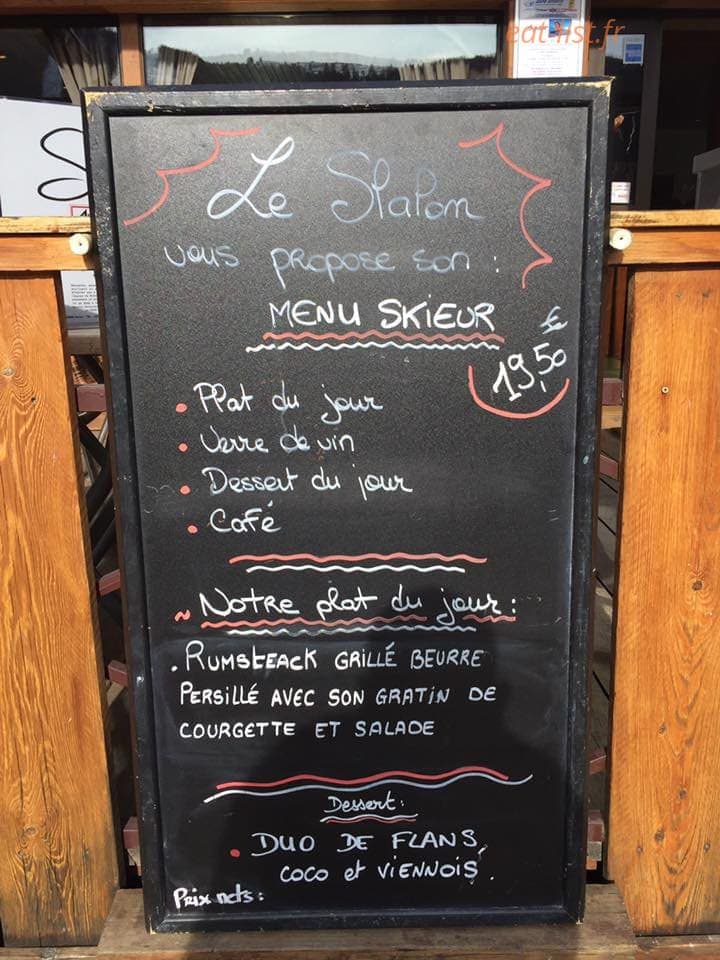 eat-list.fr
Le Slalom
vous propose son :
MENU SKIEUR
19,50 €
• Plat du jour
• Verre de vin
• Dessert du jour
• Café
~ Notre plat du jour :
• RUMSTEACK GRILLÉ BEURRE
PERSILLÉ AVEC SON GRATIN DE
COURGETTE ET SALADE
Dessert :
• DUO DE FLANS,
COCO et VIENNOIS.
Prix nets :